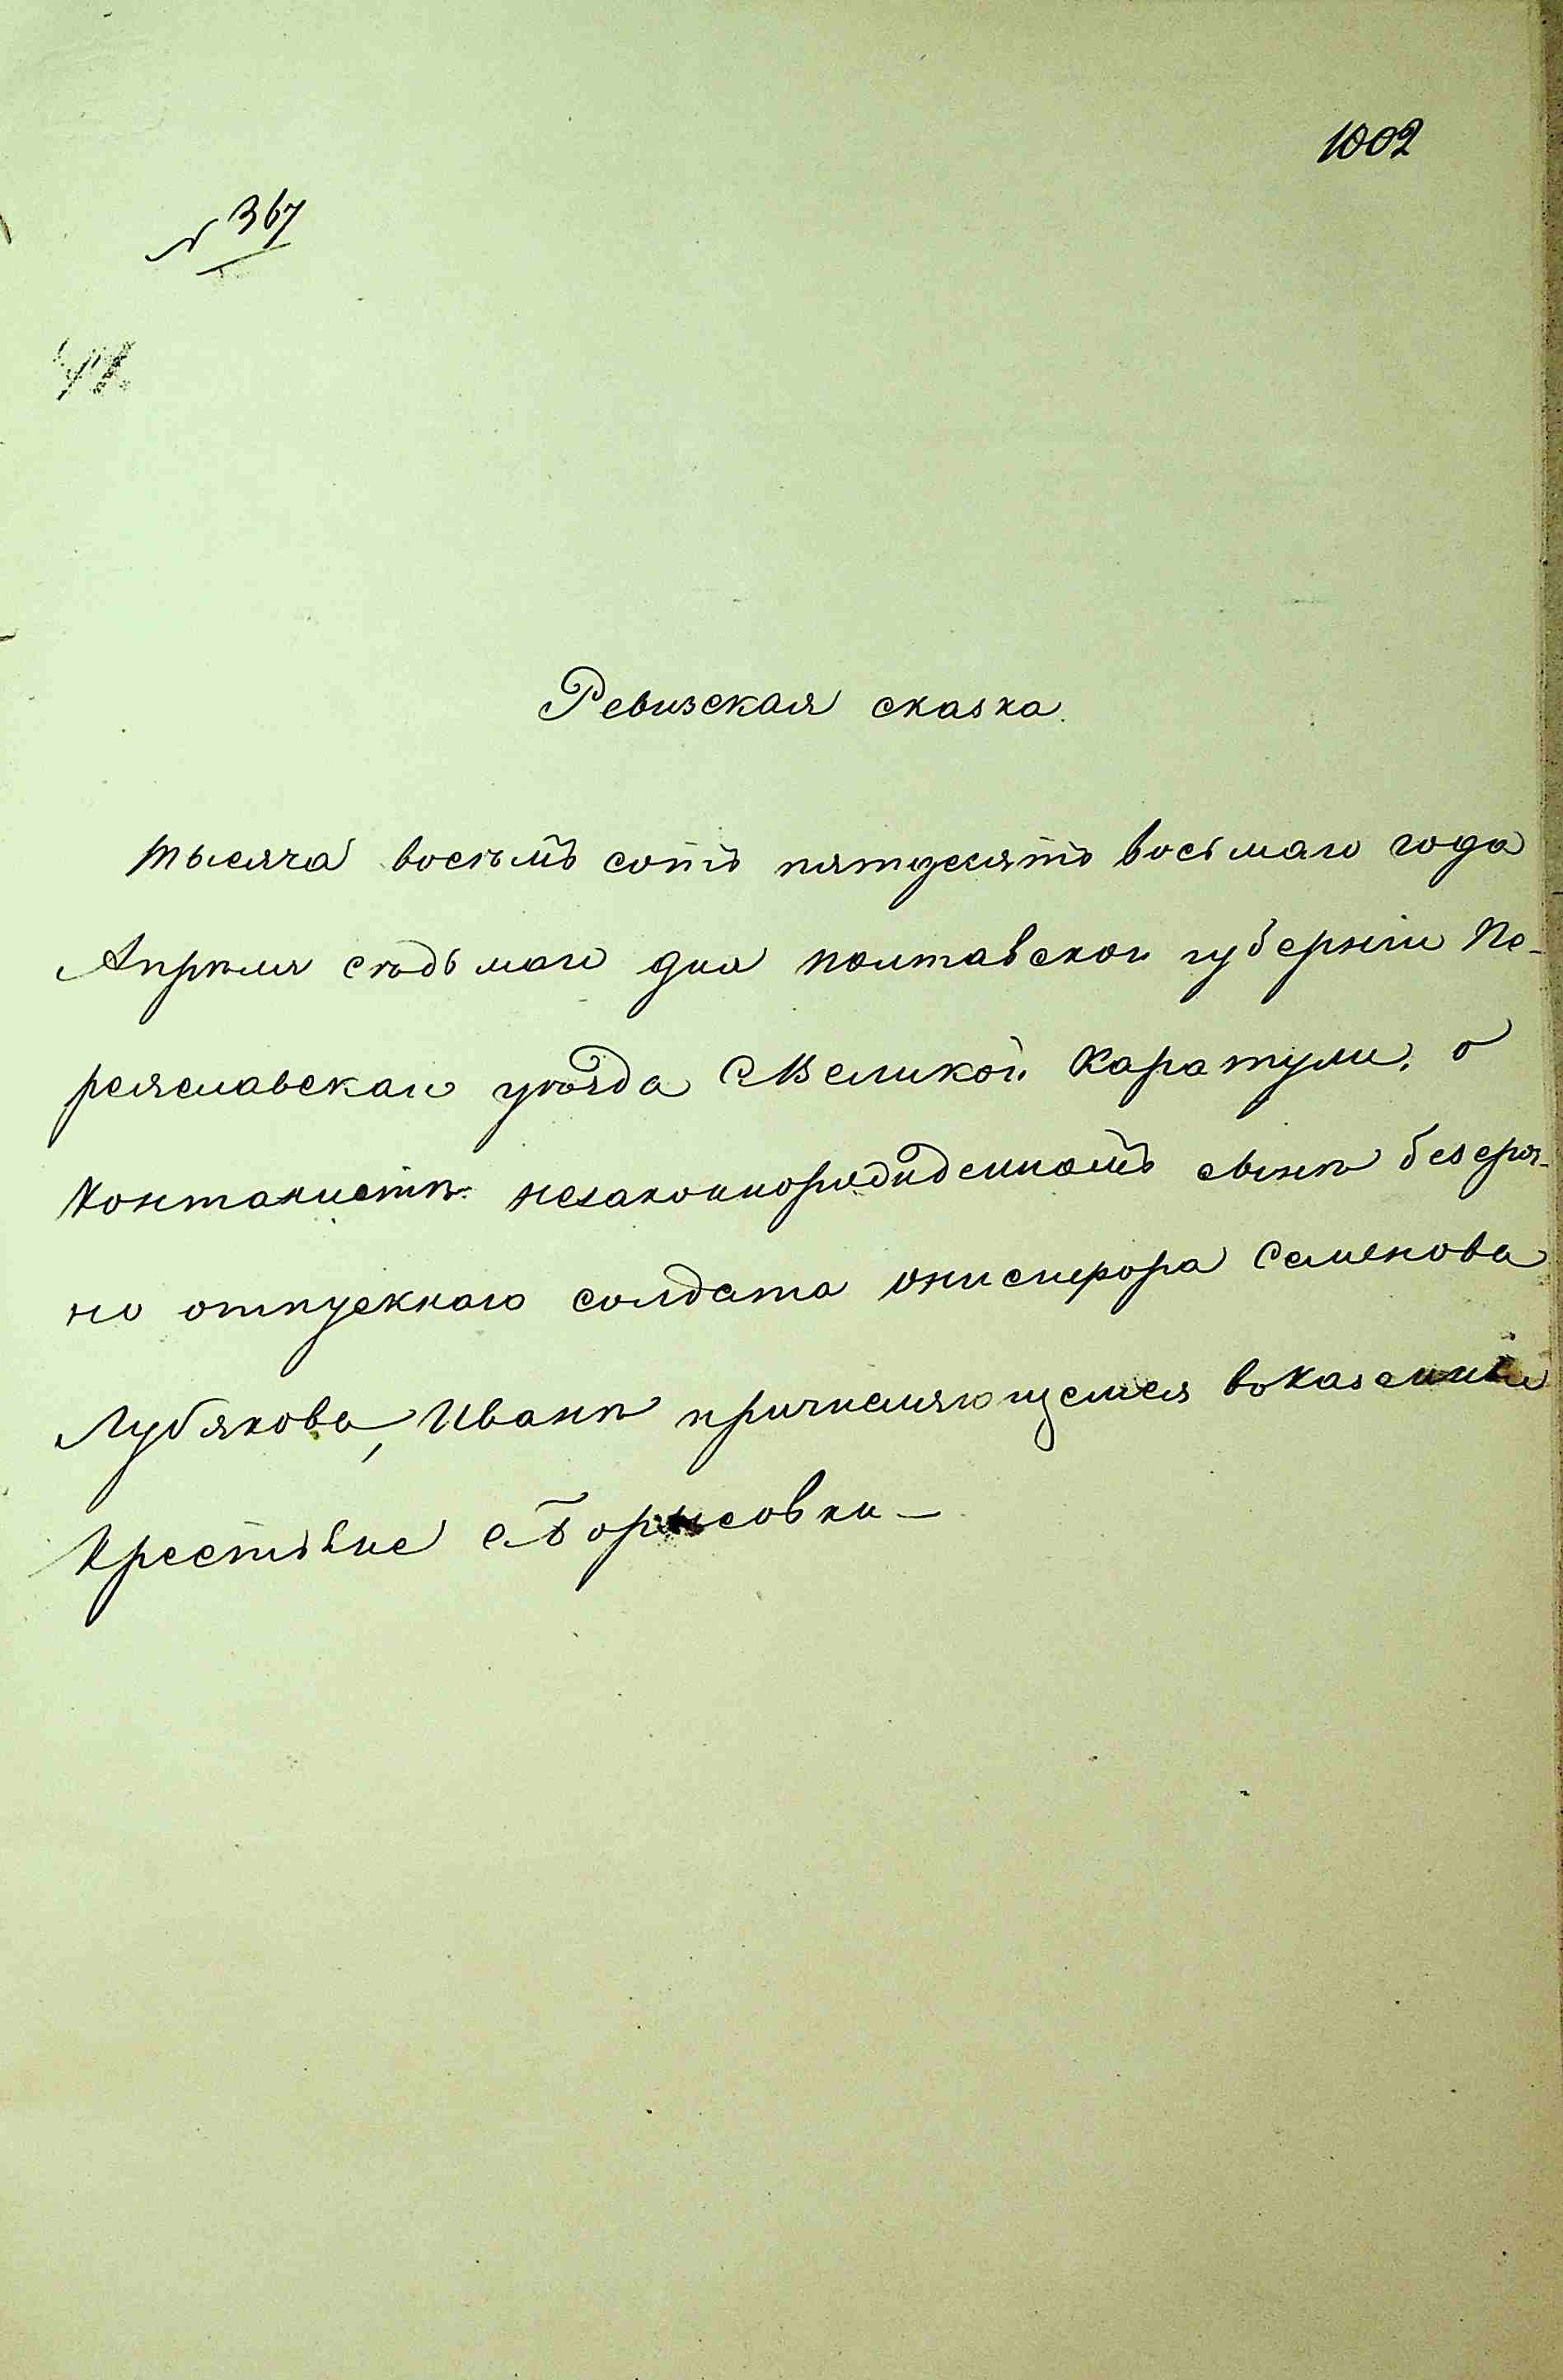 1002
№ 367
Ревизская сказка.
тысяча восемъ сотъ пятдесятъ восьмаго года
Апрѣля сѣдьмаго дня полтавской губерніи Пе-
реяславскаго уѣзда С Великой Каратули, о
Контанистѣ незаконнорожденномъ сынѣ безсроч-
но отпускнаго солдата онисифора Семенова
Лубякова, Иванѣ причисляющемся въ казенніи
Крестьяне с Борисовки —